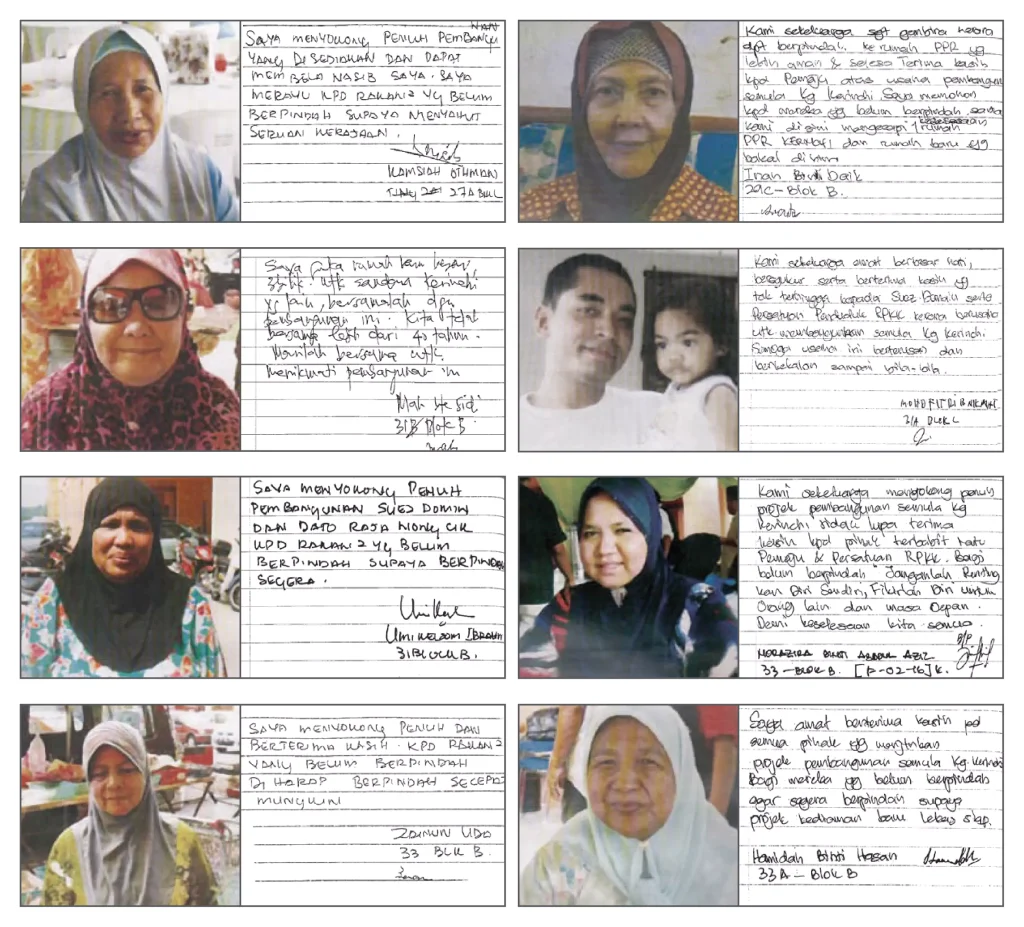 NAN
SAYA MENYOKONG PENUH PEMBANGU
YANG DISEDIAKAN DAN DAPAT
MEMBELA NASIB SAYA. SAYA
MERAYU KPD RAKAN2 YG BELUM
BERPINDAH SUPAYA MENYAHUT
SERUAN KERAJAAN.
KAMSIAH OTHMAN
27A BLK L
Kami sekeluarga sgt gembira kerana
dpt berpindah ke rumah PPR yg
lebih aman & selesa. Terima kasih
kpd Pemaju atas usaha pembangunan
semula Kg Kerinchi. Saya memohon
kpd mereka yg belum berpindah,
kami di sini mengecapi keselesaan rumah
PPR KERINCHI dan rumah baru yg
bakal dibina
Inah Binti Baik
29C-Blok B.
Saya suka rumah baru
utk saudara Kerinchi
yg lain, bersamalah dgn
pembangunan ini. Kita telah
bersama lebih dari 40 tahun.
Marilah bersama utk
menikmati pembangunan ini
Mah
31B Blok B
Kami sekeluarga amat berbesar hati,
bersyukur serta berterima kasih yg
tak terhingga kepada Suez Domain serta
Persatuan Penduduk RPKK kerana berusaha
utk membangunkan semula Kg Kerinchi
Semoga usaha ini berterusan dan
berkekalan sampai bila-bila.
31A BLOK L
SAYA MENYOKONG PENUH
PEMBANGUNAN SUEZ DOMIN
DAN DATO RAJA NONG CIK
KPD RAKAN2 YG BELUM
BERPINDAH SUPAYA BERPINDAH
SEGERA.
UMI KELSOM IBRAHIM
31 BLOCK B.
Kami sekeluarga menyokong penuh
projek pembangunan semula Kg
Kerinchi. Tidak lupa terima
kasih kpd pihak terbabit iaitu
Pemaju & Persatuan RPKK. Bagi
belum berpindah "Janganlah Penting
kan Diri Sendiri, Fikirlah Diri untuk
Orang lain dan masa Depan.
Demi keselesaan kita semua.
B/P
NORAZIRA BINTI ABDUL AZIZ
33-BLOK B. [P-02-16] K.
SAYA MENYOKONG PENUH DAN
BERTERIMA KASIH. KPD RAKAN2
YANG BELUM BERPINDAH
DI HARAP BERPINDAH SECEPAT
MUNGKIN
ZAIMUN UDA
33 BLK B.
Saya amat berterima kasih pd
semua pihak yg menjayakan
projek pembangunan semula Kg Kerinchi
Bagi mereka yg belum berpindah
agar segera berpindah supaya
projek kediaman baru lekas siap.
Hamidah Binti Hasan
33A-Blok B